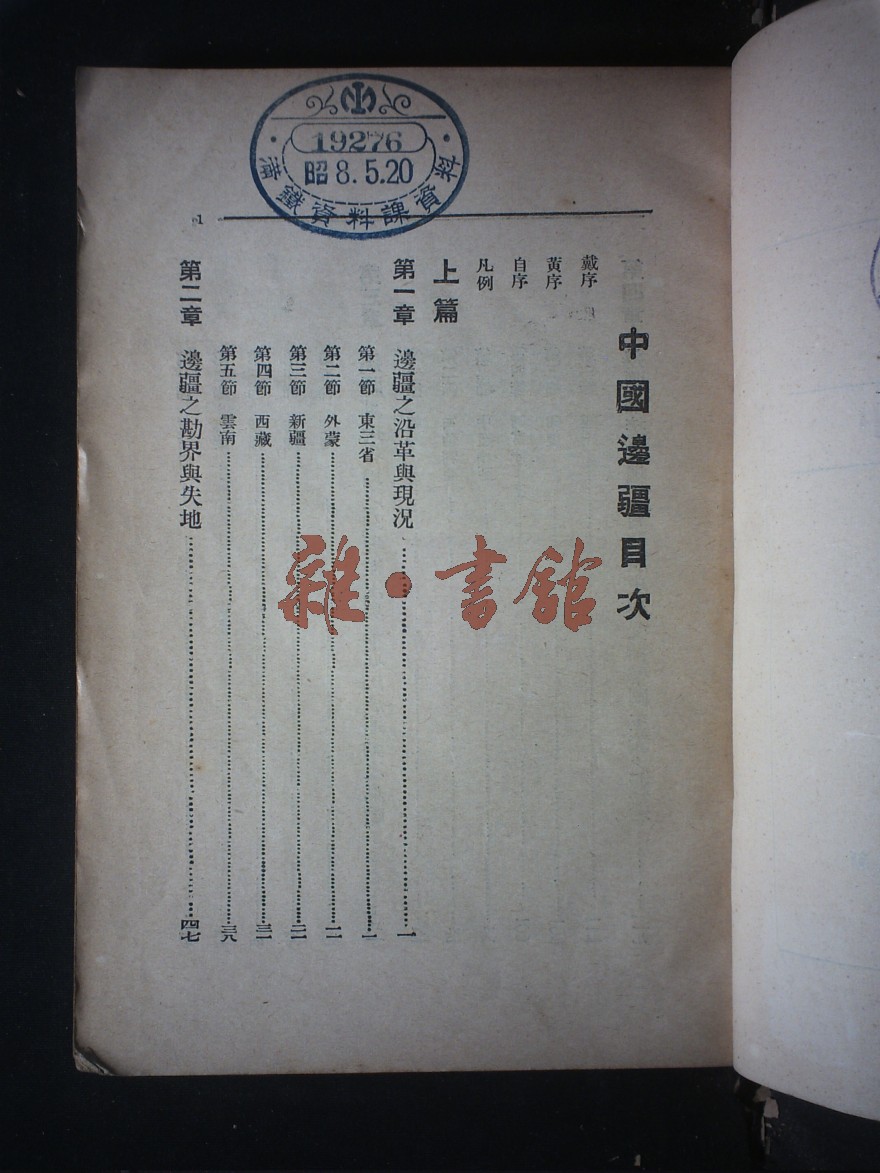 中國邊疆目次
戴序
黃序
自序
凡例
上篇
第一章 邊疆之沿革與現況……一
第一節 東三省……一
第二節 外蒙……一一
第三節 新疆……二一
第四節 西藏……三一
第五節 雲南……三八
第二章 邊疆之勘界與失地……四七
1
19276
昭8.5.20
滿鐵資料課資料
雜·書館